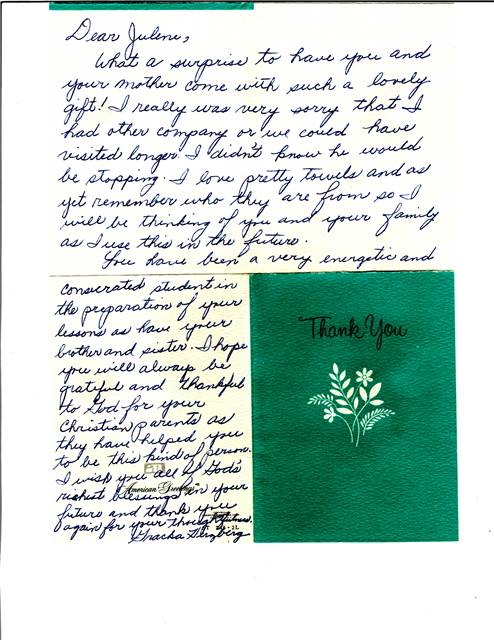 Dear Julene,
What a surprise to have you and
your mother come with such a lovely
gift! I really was very sorry that I
had other company or we could have
visited longer. I didn't know he would
be stopping. I love pretty towels and as
yet remember who they are from so I
will be thinking of you and your family
as I use this in the future.
You have been a very energetic and
consecrated student in
the preparation of your
lessons as have your
brother and sister. I hope
you will always be
grateful and thankful
to God for your
Christian parents as
they have helped you
to be this kind of person.
I wish you all of God's
richest blessings in your
future and thank you
again for your thoughtfulness.
American Greetings
Thank You